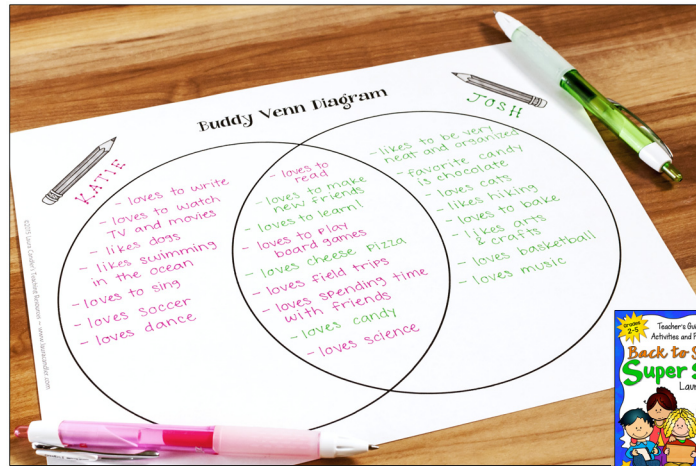 Buddy Venn Diagram
KATIE
- loves to write
- loves to watch
TV and movies
- likes dogs
- likes swimming
in the ocean
- loves to sing
- loves soccer
- loves dance
- loves to
read
- loves to make
new friends
- loves to learn!
- loves to play
board games
- loves cheese pizza
- loves field trips
- loves spending time
with friends
- loves candy
- loves science
JOSH
- likes to be very
neat and organized
- favorite candy
is chocolate
- loves cats
- likes hiking
- loves to bake
- likes arts
& crafts
- loves basketball
- loves music
Grades
2-5
Teacher's
Activities and
Back to
Super